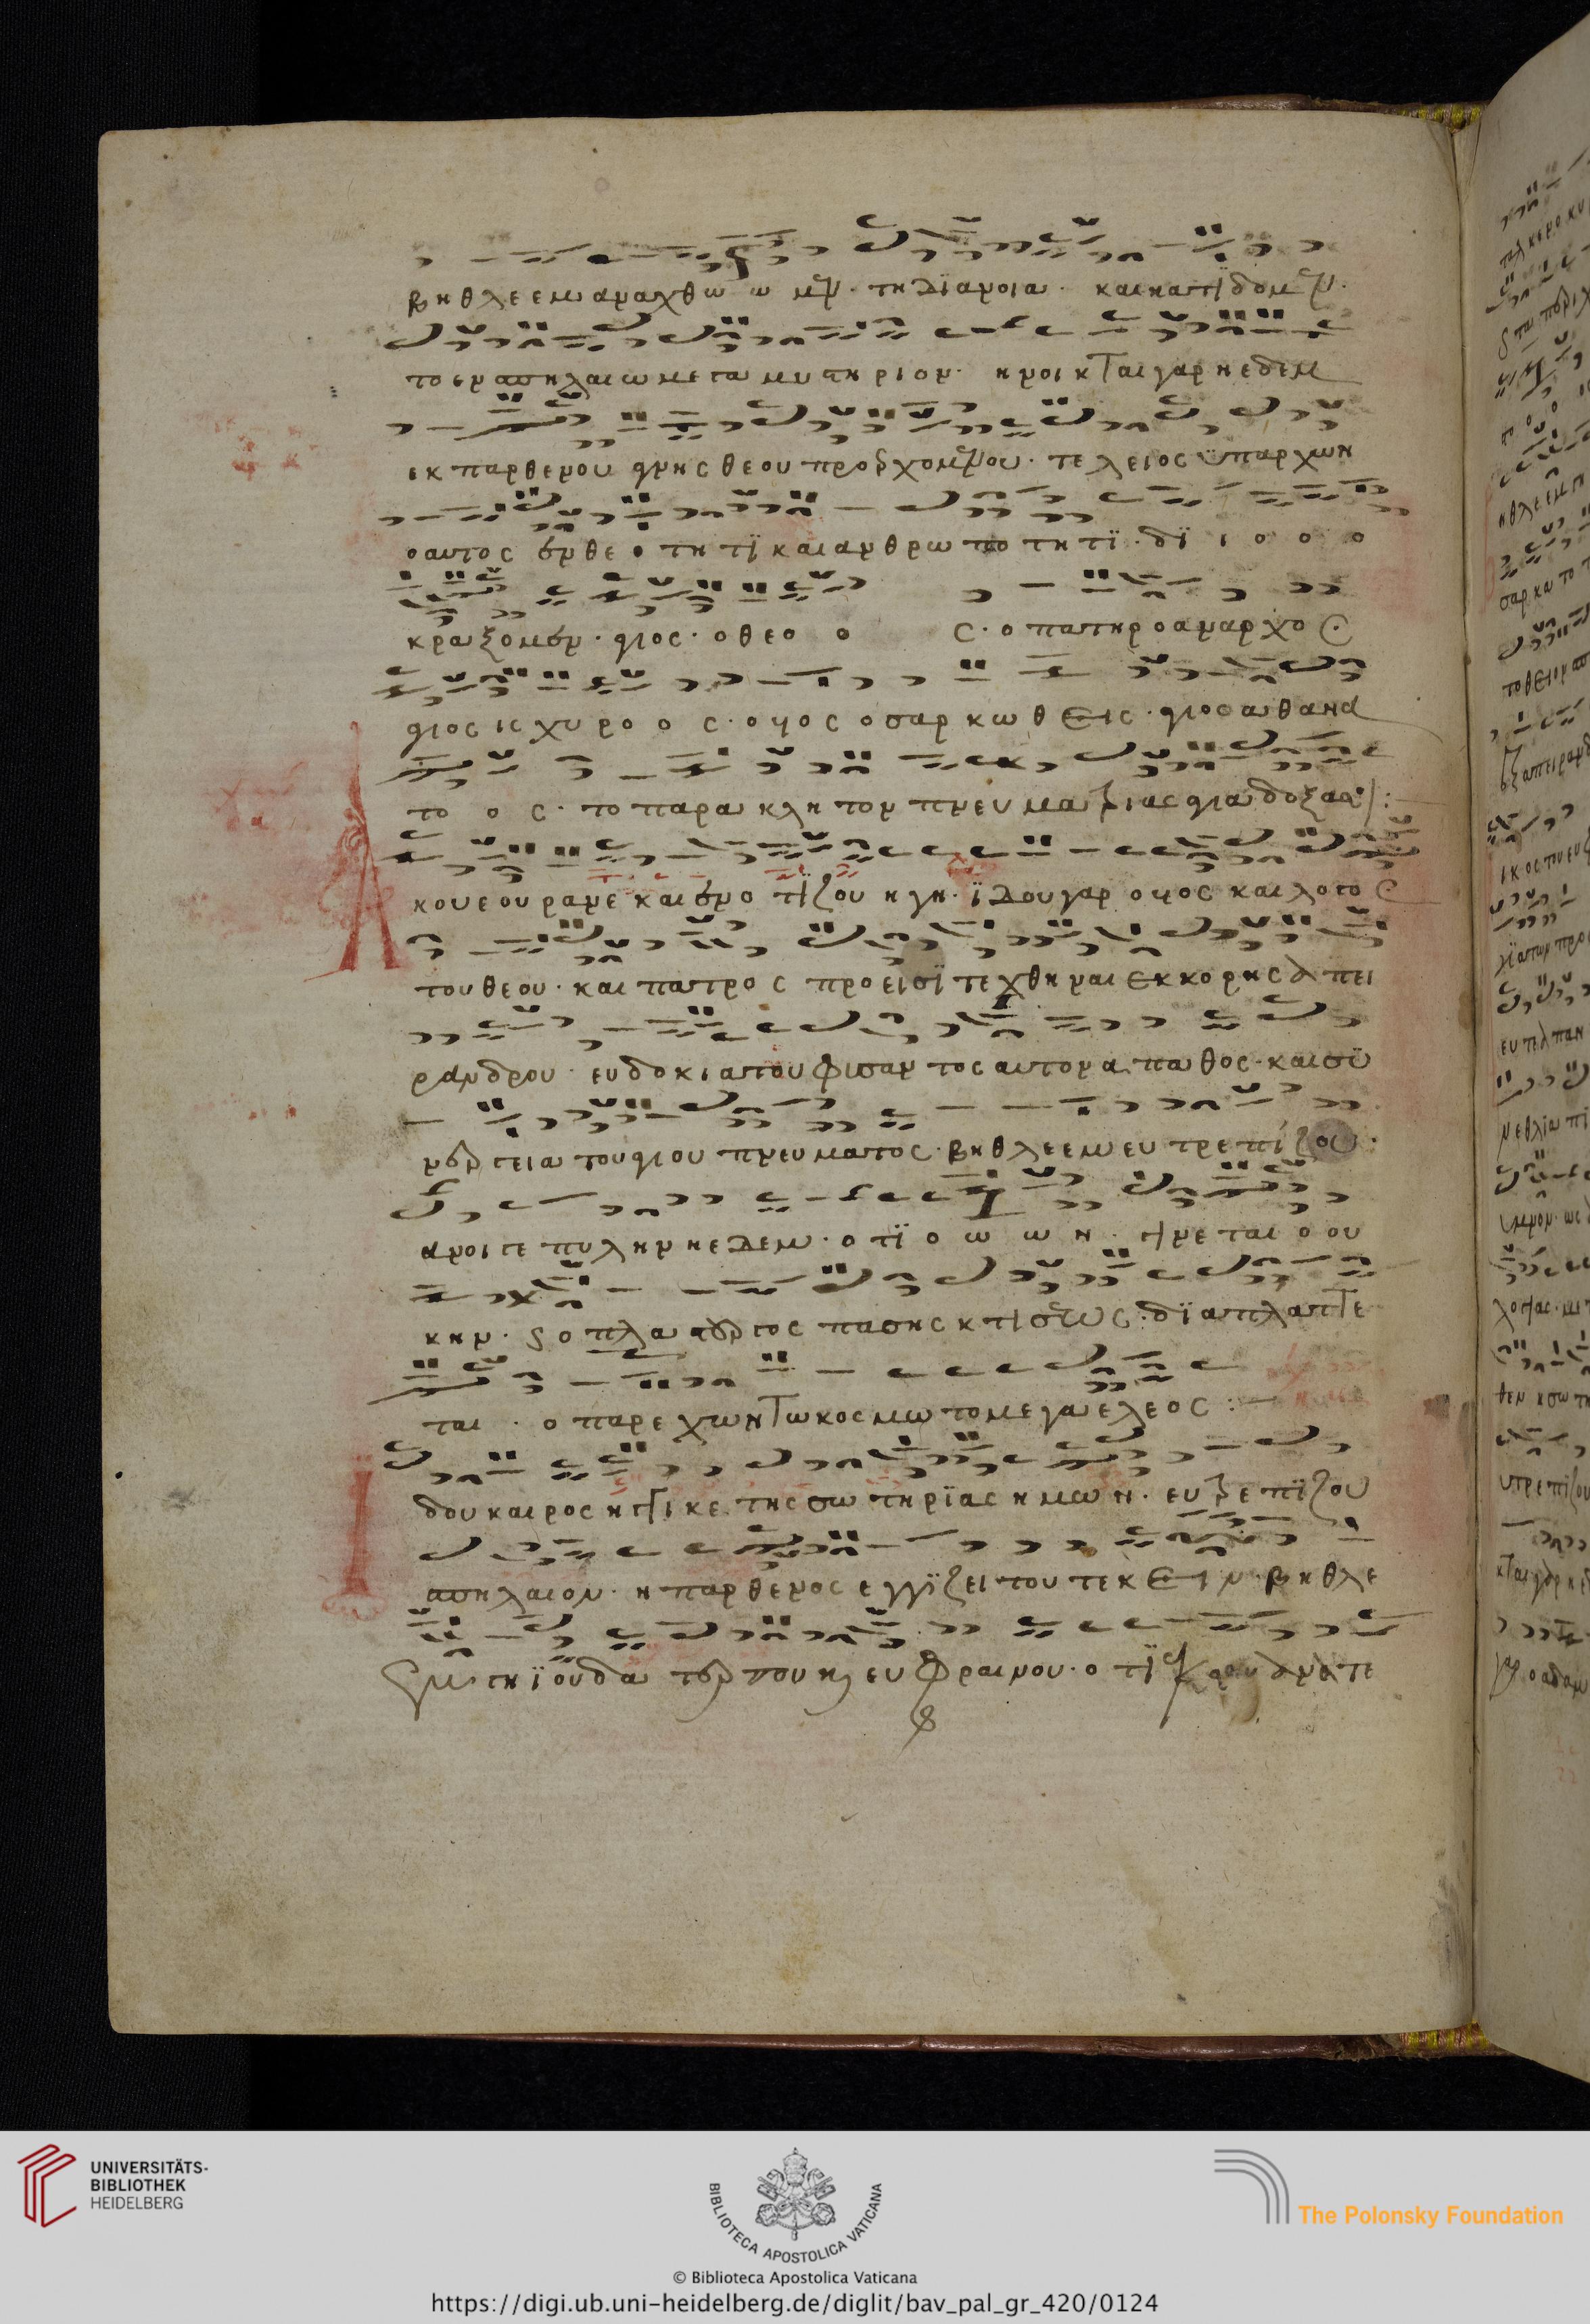 βηθλεεμ αναχθω ω μεν· τη διανοια· και κατιδομεν·
το εν σπηλαιω μεγα μυστηριον· ηνοικται γαρ η εδεμ
εκ παρθενου αγνης θεου προερχομενου· τελειος ϋπαρχων
ο αυτος εν θεοτητϊ και ανθρωποτητϊ· δϊ ι ο ο ο
κραξομεν· αγιος· ο θεο ο ς· ο πατηρ ο αναρχος
αγιος ισχυρο ο ς· ο υιος ο σαρκωθεις· αγιος αθανα
το ο ς· το παρακλητον πνευμα τριας αγια δοξα σοι:
Ακουε ουρανε και ενοτϊζου η γη· ϊδου γαρ ο υιος και λογος
του θεου· και πατρος προεισϊ τεχθηναι εκ κορης απει
ρανδρου· ευδοκια του φυσαντος αυτον απαθος· και συ
νεργεια του αγιου πνευματος· βηθλεεμ ευτρεπιζου·
ανοιγε πυλην η εδεμ· οτϊ ο ω ων· γινεται ο ου
κ ην· κ ο πλαστουργος πασης κτισεως· διαπλαττε
ται· ο παρεχων τω κοσμω το μεγα ελεος:
Ιδου καιρος ηγγικε της σωτηρϊας ημων· ευτρεπϊζου
σπηλαιον· η παρθενος εγγϊζει του τεκειν· βηθλε
εμ γη ϊουδα τερπου κ ευφραινου· οτϊ εκ σου ανατε
UNIVERSITÄTS-
BIBLIOTHEK
HEIDELBERG
BIBLIOTECA APOSTOLICA VATICANA
The Polonsky Foundation
© Biblioteca Apostolica Vaticana
https://digi.ub.uni-heidelberg.de/diglit/bav_pal_gr_420/0124